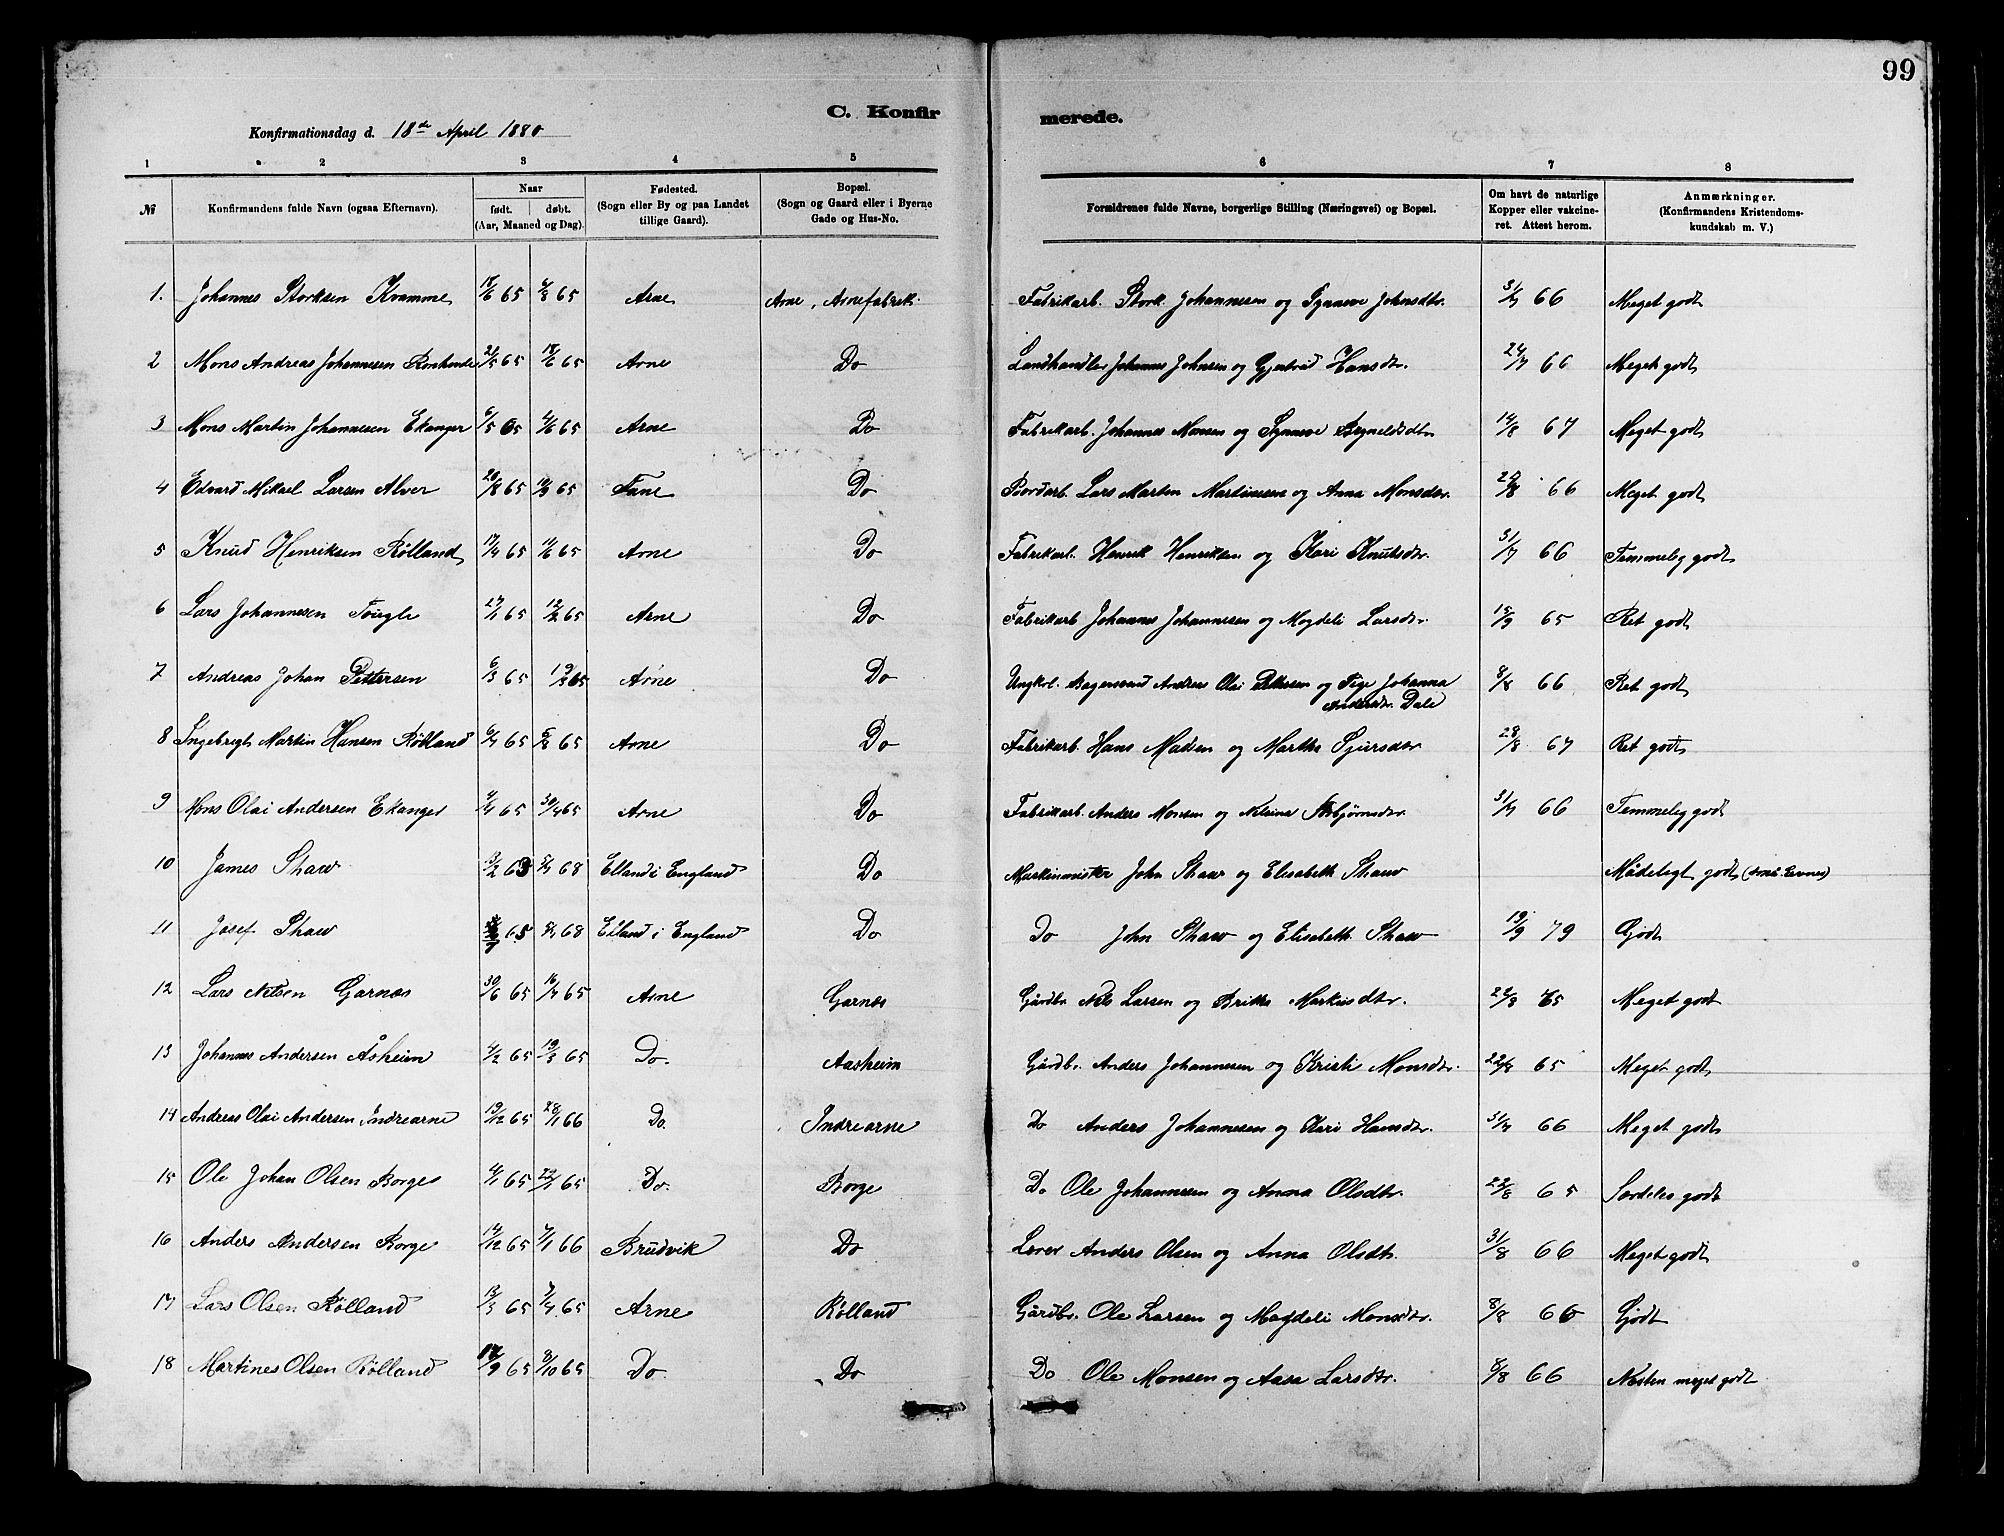 99
C. Konfirmerede.
Konfirmationsdag d. 18de April 1880
1 2 3 4 5 6 7 8
№ Konfirmandens fulde Navn (ogsaa Efternavn). Naar født. døbt. (Aar, Maaned og Dag). Fødested. (Sogn eller By og paa Landet tillige Gaard). Bopæl. (Sogn og Gaard eller i Byerne Gade og Hus-No. Forældrenes fulde Navne, borgerlige Stilling (Næringsvei) og Bopæl. Om havt de naturlige Kopper eller vakcineret. Attest herom. Anmærkninger. (Konfirmandens Kristendomskundskab m. V.)
1. Johannes Storksen Kvamme 65 65 Arne Arne, Arnefabrik. Fabrikarb. Stork Johannesen og Synneve Johnsdtr. 31/7 66 Meget godt
2 Mons Andreas Johannesen 21/5 65 18/6 65 Arne Do Landhandler Johannes Johnsen og Gjertrud Hansdtr. 24/7 66 Meget godt
3 Mons Martin Johannesen Ekanger 6/5 65 4/6 65 Arne Do Fabrikarb. Johannes Monsen og Synneve 14/8 67 Meget godt
4 Edvard Mikael Larsen Alver 20/8 65 65 Fane Do Lars Martin Martinesen og Anna Monsdtr. 66 Meget godt
5 Knud Henriksen Rølland 17/4 65 65 Arne Do Fabrikarb. Henrik Henriksen og Kari Knutsdtr. 31/7 66 Temmelig godt
6 Lars Johannesen 27/1 65 12/2 65 Arne Do Fabrikarb Johannes Johannesen og Magdeli Larsdtr. 15/9 65 Ret godt
7 Andreas Johan Pettersen 6/3 65 19/3 65 Arne Do Ungkrl. Andreas Olai Pettersen og Pige Johanna Andersdtr. Dale 8/8 66 Ret godt
8 Ingebrigt Martin Hansen Rølland 6/7 65 65 Arne Do Fabrikarb Hans Madsen og Marthe Sjursdtr 28/8 67 Ret godt
9 Mons Olai Andersen Ekanger 65 30/4 65 Arne Do Fabrikarb. Anders Monsen og 31/7 66 Temmelig godt
10 James Shaw 3/2 63 68 Elland i England Do Maskinmister John Shaw og Elisabeth Shaw Mådeligt godt (små Evner)
11 Josef Shaw 65 68 Elland i England Do Do John Shaw og Elisabeth Shaw 19/9 79 Godt
12 Lars Nilsen Garnæs 30/6 65 16/7 65 Arne Garnæs Gårdbr. Nils Larsen og Britha 22/8 65 Meget godt
13 Johannes Andersen Åsheim 4/2 65 19/3 65 Do. Aasheim Gårdbr. Anders Johannesen og Kristi Monsdtr. 22/8 65 Meget godt
14 Andreas Olai Andersen Indrearne 19/12 65 28/1 66 Do. Indrearne Do Anders Johannesen og Kari Hansdtr. 31/7 66 Meget godt
15 Ole Johan Olsen Borge 4/1 65 22/1 65 Do. Borge Do Ole Johannesen og Anna Olsdtr. 22/8 65 Særdeles godt
16 Anders Andersen Borge 14/12 65 7/1 66 Brudvik Do Lærer Anders Olsen og Anna Olsdtr. 31/8 66 Meget godt
17 Lars Olsen Rølland 12/3 65 65 Arne Rølland Gårdbr. Ole Larsen og Magdeli Monsdtr. 8/8 66 Godt
18 Martines Olsen Rølland 17/9 65 8/10 65 Do Do Do Ole Monsen og Aasa Larsdtr. 8/8 66 Næsten meget godt